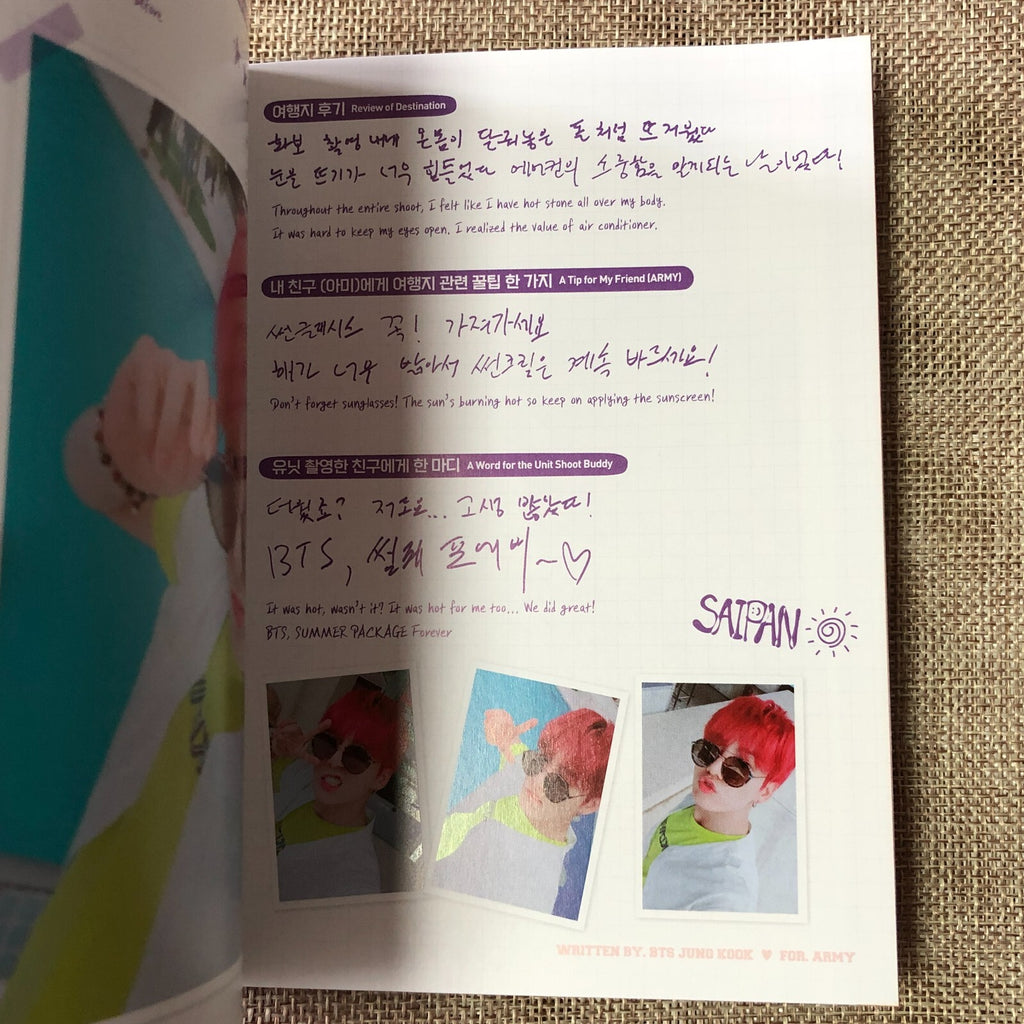 여행지 후기 Review of Destination
화보 촬영 내내 온몸이 달궈놓은 돌처럼 뜨거웠다
눈을 뜨기가 너무 힘들었다 에어컨의 소중함을 알게되는 날이었다!
Throughout the entire shoot, I felt like I have hot stone all over my body.
It was hard to keep my eyes open. I realized the value of air conditioner.
내 친구 (아미)에게 여행지 관련 꿀팁 한 가지 A Tip for My Friend (ARMY)
썬글래시스 꼭! 가져가세요
해가 너무 밝아서 썬크림은 계속 바르세요!
Don't forget sunglasses! The sun's burning hot so keep on applying the sunscreen!
유닛 촬영한 친구에게 한 마디 A Word for the Unit Shoot Buddy
더웠죠? 저도요... 고생 많았다!
BTS, 썸패 포에버~♡
It was hot, wasn't it? It was hot for me too... We did great!
BTS, SUMMER PACKAGE Forever
SAIPAN
WRITTEN BY. BTS JUNG KOOK ♥ FOR. ARMY